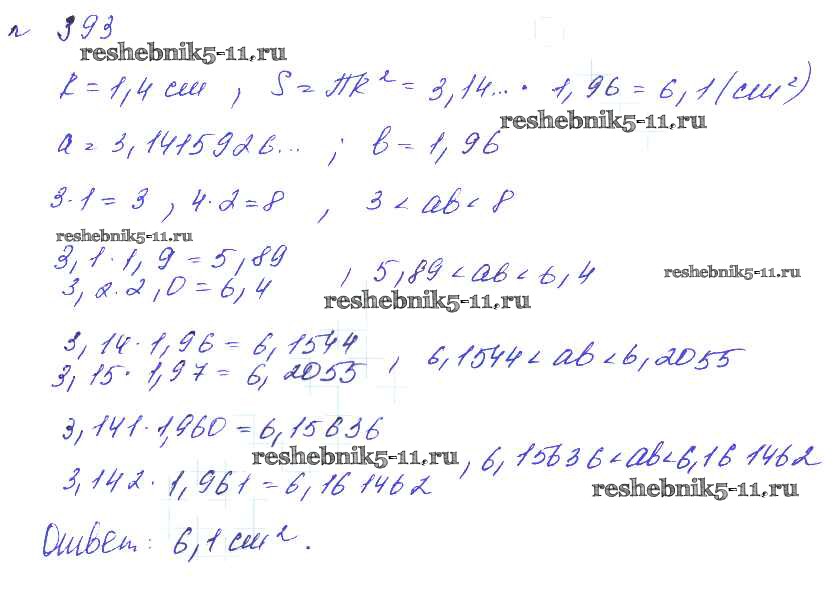 № 393
reshebnik5-11.ru
R = 1,4 см , S = ПR² = 3,14... · 1,96 = 6,1 (см²)
reshebnik5-11.ru
a = 3,1415926... ; b = 1,96
3·1 = 3 , 4·2 = 8 , 3 < ab < 8
reshebnik5-11.ru
3,1·1,9 = 5,89
3,2·2,0 = 6,4 , 5,89 < ab < 6,4
reshebnik5-11.ru
reshebnik5-11.ru
3,14·1,96 = 6,1544
3,15·1,97 = 6,2055 , 6,1544 < ab < 6,2055
3,141·1,960 = 6,15636
reshebnik5-11.ru
3,142·1,961 = 6,161462 , 6,15636 < ab < 6,161462
reshebnik5-11.ru
Ответ: 6,1 см².